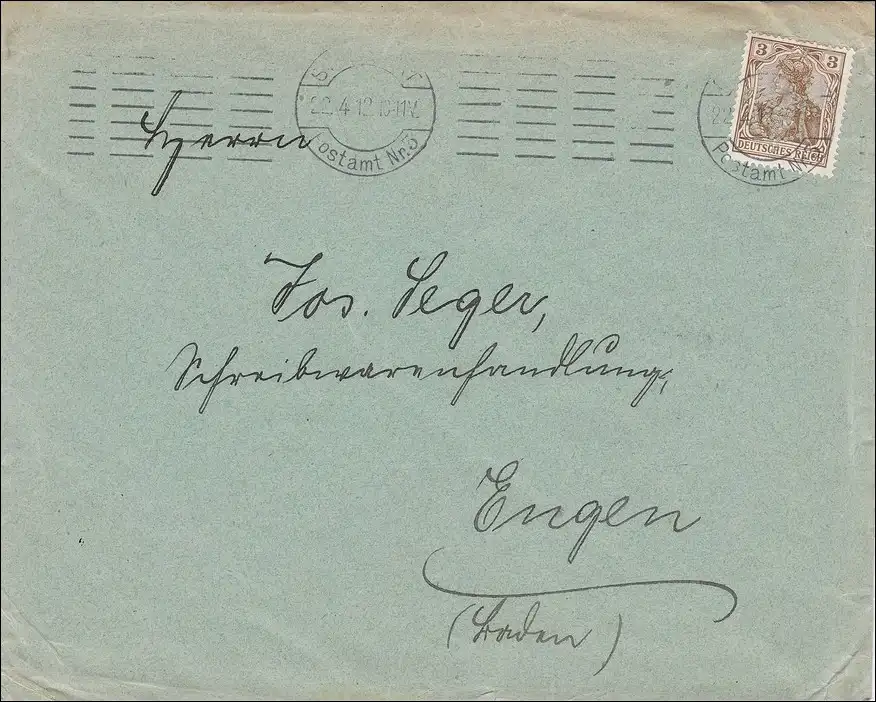 22.4.12.10-11V.
Postamt Nr.3
3 3
DEUTSCHES REICH
22.4.1
Postamt N
Herrn
Jos. Seger,
Schreibwarenhandlung,
Engen
(Baden)